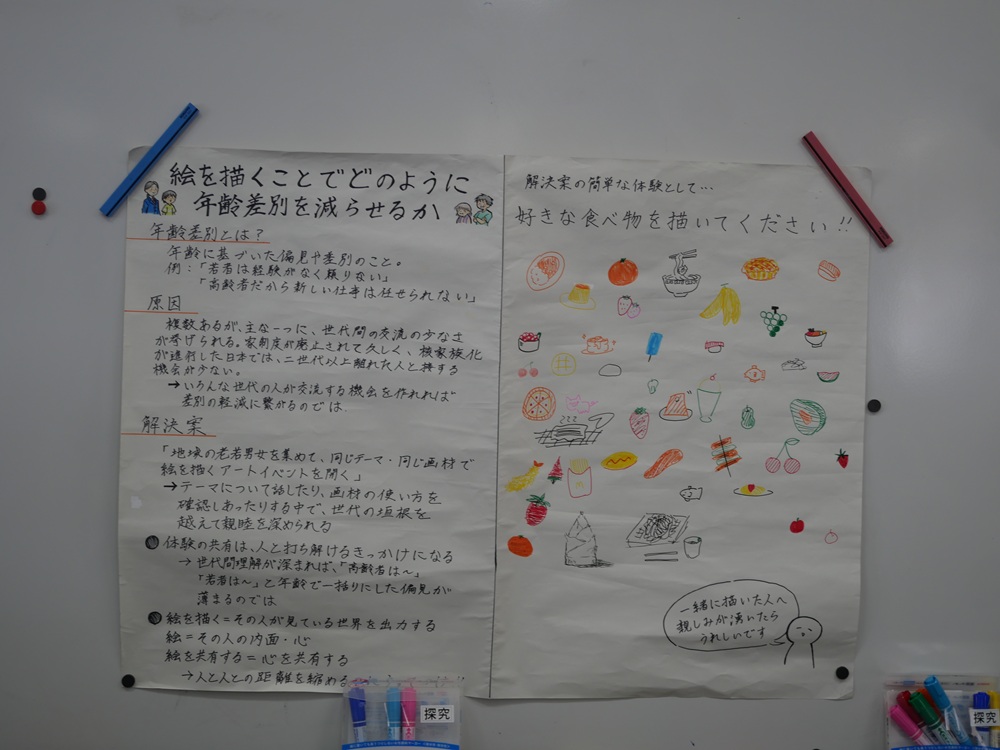 絵を描くことでどのように
年齢差別を減らせるか
年齢差別とは?
年齢に基づいた偏見や差別のこと。
例:「若者は経験がなく頼りない」
「高齢者だから新しい仕事は任せられない」
原因
複数あるが、主な一つに、世代間の交流の少なさ
が挙げられる。家制度が廃止されて久しく、核家族化
が進行した日本では、二世代以上離れた人と接する
機会が少ない。
→いろんな世代の人が交流する機会を作れれば
差別の軽減に繋がるのでは
解決案
「地域の老若男女を集めて、同じテーマ・同じ画材で
絵を描くアートイベントを開く」
→テーマについて話したり、画材の使い方を
確認しあったりする中で、世代の垣根を
越えて親睦を深められる
体験の共有は、人と打ち解けるきっかけになる
→世代間理解が深まれば、「高齢者は〜」
「若者は〜」と年齢で一括りにした偏見が
薄まるのでは
絵を描く=その人が見ている世界を出力する
絵=その人の内面・心
絵を共有する=心を共有する
→人と人との距離を縮める
解決案の簡単な体験として…
好きな食べ物を描いてください!!
一緒に描いた人へ
親しみが湧いたら
うれしいです
探究
探究